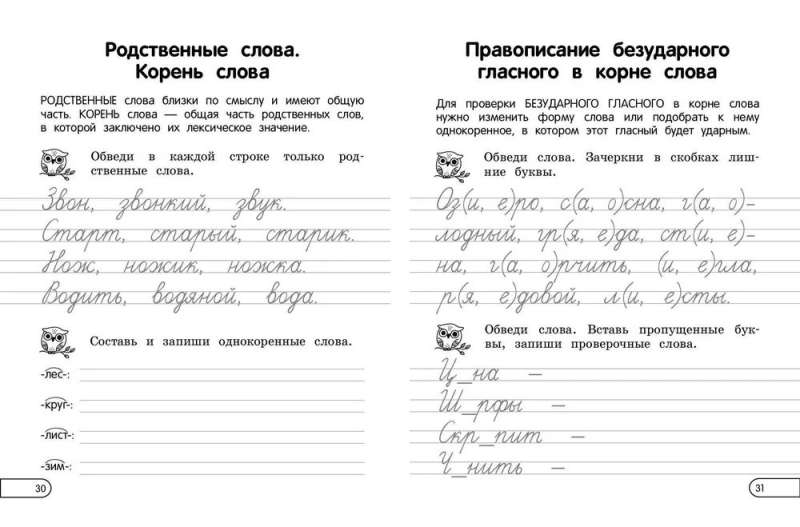 Родственные слова.
Корень слова
РОДСТВЕННЫЕ слова близки по смыслу и имеют общую
часть. КОРЕНЬ слова — общая часть родственных слов,
в которой заключено их лексическое значение.
Обведи в каждой строке только род-
ственные слова.
Звон, звонкий, звук.
Старт, старый, старик.
Нож, ножик, ножка.
Водить, водяной, вода.
Составь и запиши однокоренные слова.
-лес-:
-круг-:
-лист-:
-зим-:
30
Правописание безударного
гласного в корне слова
Для проверки БЕЗУДАРНОГО ГЛАСНОГО в корне слова
нужно изменить форму слова или подобрать к нему
однокоренное, в котором этот гласный будет ударным.
Обведи слова. Зачеркни в скобках лиш-
ние буквы.
Оз(и, е)ро, с(а, о)сна, г(а, о)-
лодный, гр(я, е)да, ст(и, е)-
на, г(а, о)рчить, (и, е)гла,
р(я, е)довой, л(и, е)сты.
Обведи слова. Вставь пропущенные бук-
вы, запиши проверочные слова.
Ц_на —
Ш_рфы —
Скр_пит —
Ч_нить —
31